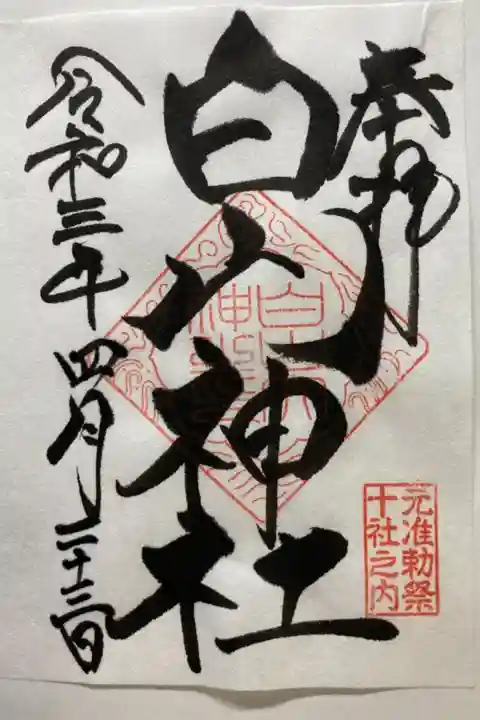 奉拝
白山神社
令和三年四月二十三日
白山神社
元准勅祭
十社之内